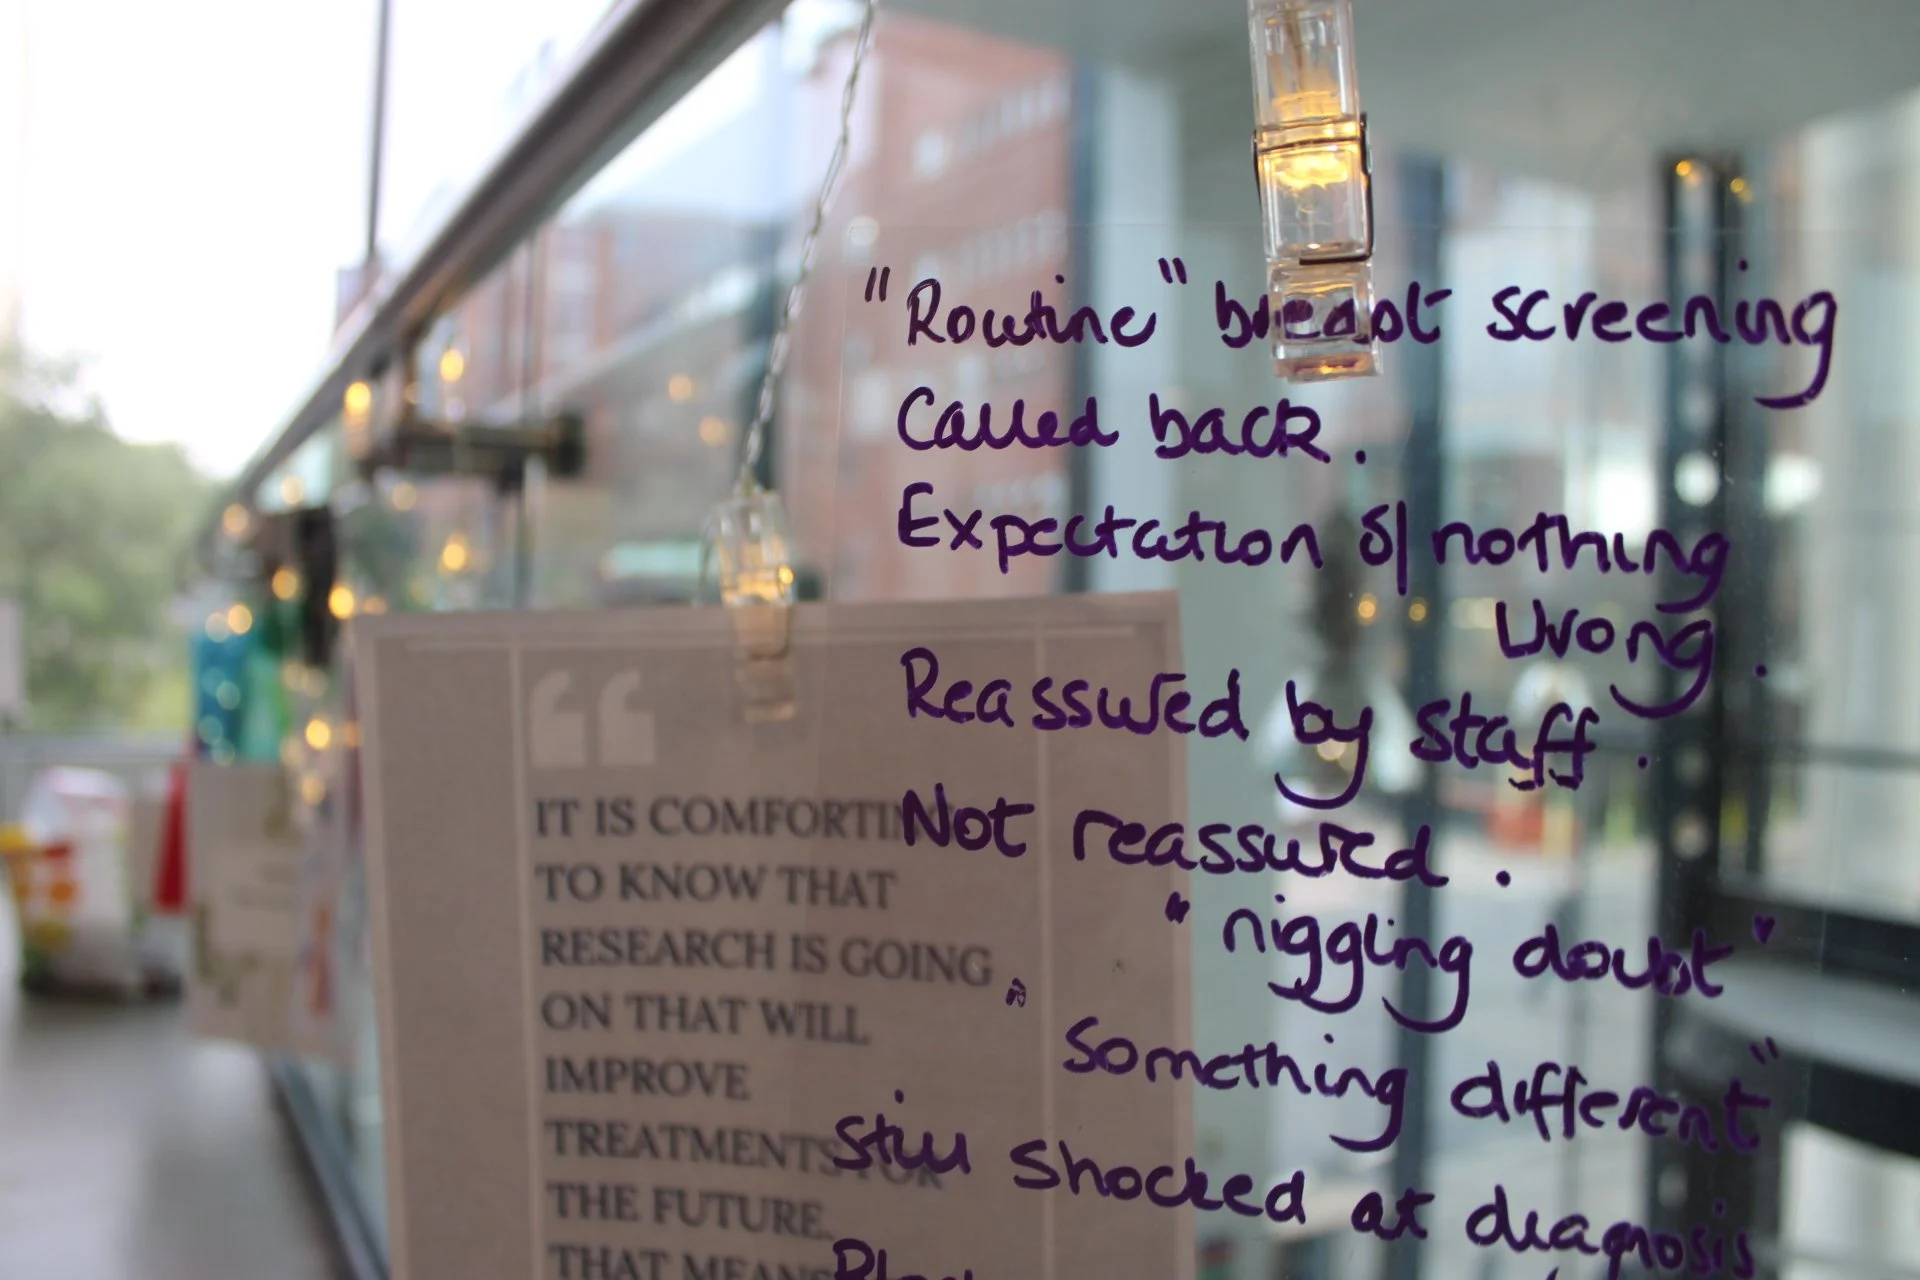 "Routine" breast screening
Called back.
Expectation of nothing
Wrong.
Reassured by staff.
Not reassured.
"niggling doubt"
"Something different"
Still shocked at diagnosis
“
IT IS COMFORTING
TO KNOW THAT
RESEARCH IS GOING
ON THAT WILL
IMPROVE
TREATMENTS FOR
THE FUTURE.
THAT MEANS